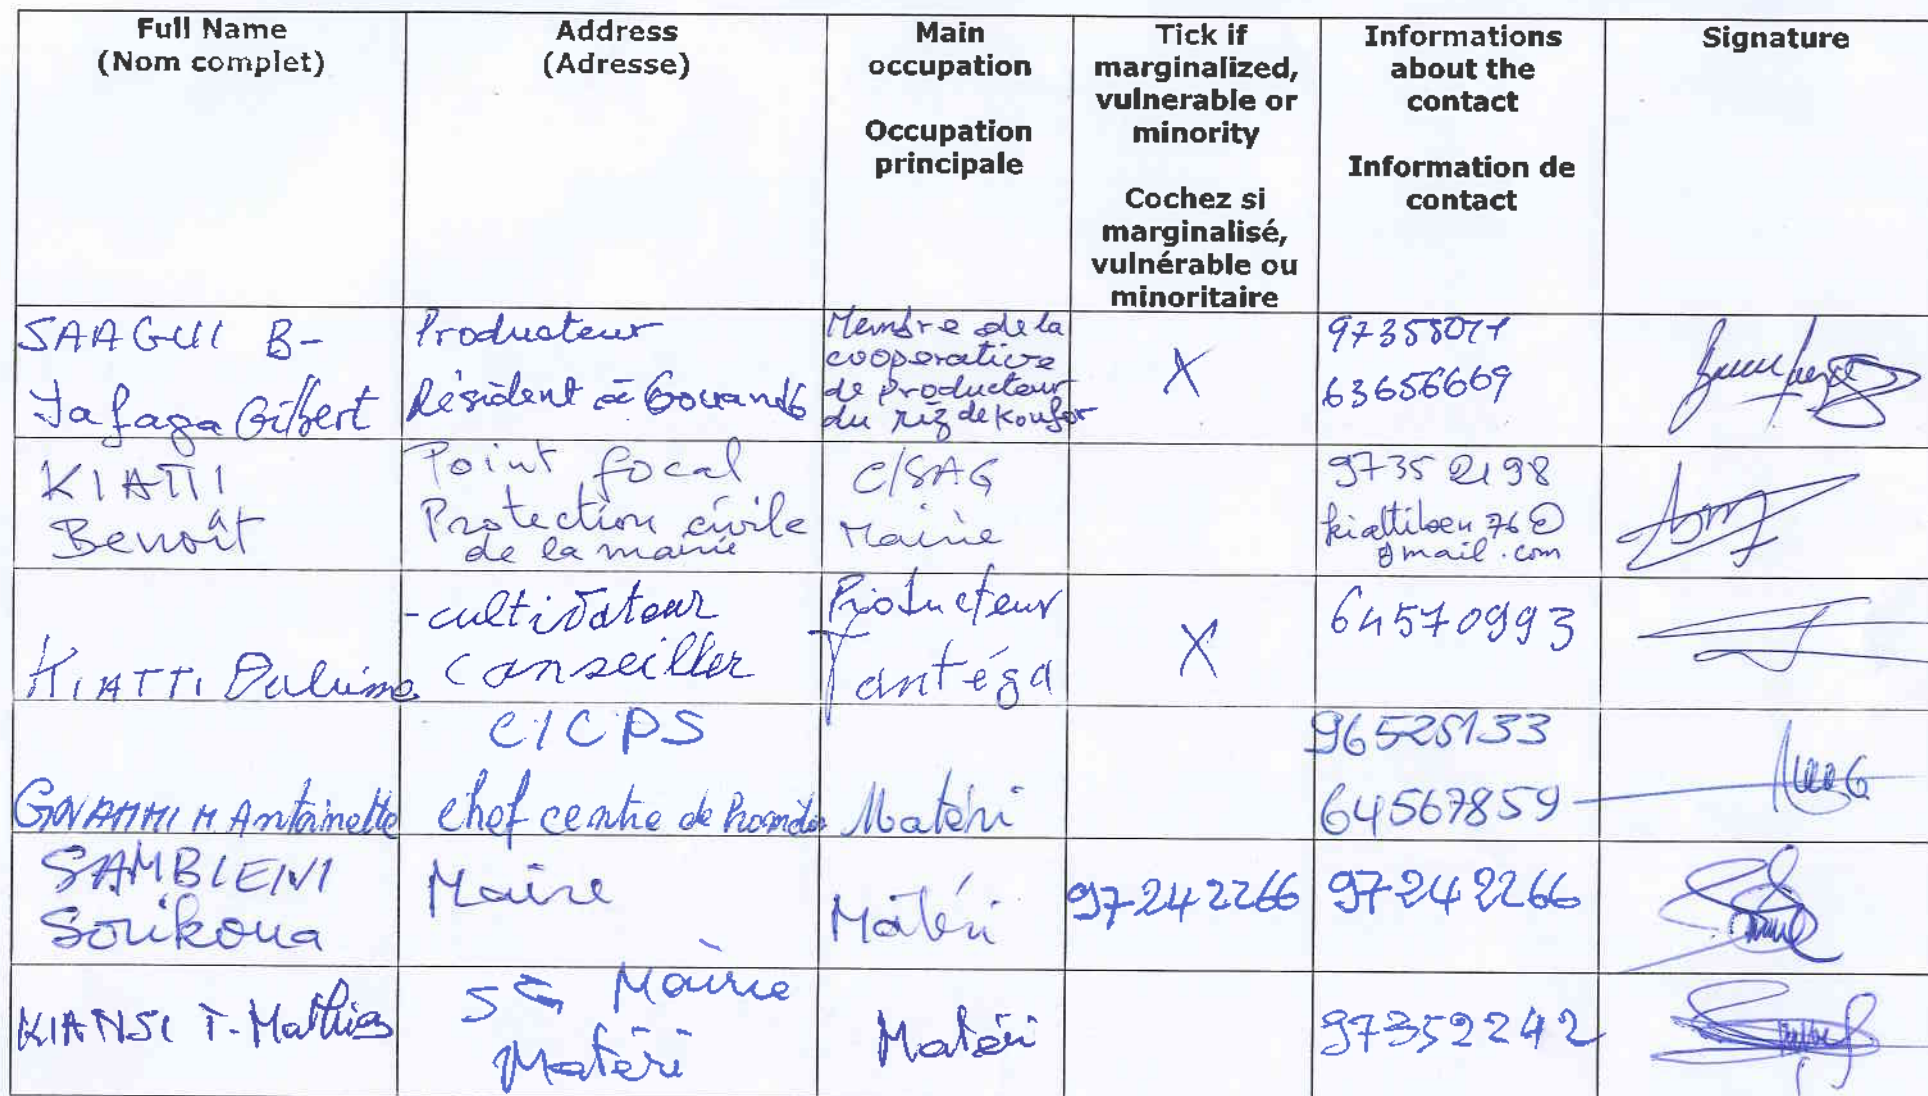 Full Name
(Nom complet)
Address
(Adresse)
Main
occupation
Occupation
principale
Tick if
marginalized,
vulnerable or
minority
Cochez si
marginalisé,
vulnérable ou
minoritaire
Informations
about the
contact
Information de
contact
Signature
SAAGUI B-
Gilbert
Producteur
Résident à Gouandé
Membre de la
cooperative
de producteur
du riz de Koufor
X
63656669
KIATTI
Benoît
Point focal
Protection civile
de la mairie
C/SAG
Mairie
97352198
kiattiben76@
gmail.com
KIATTI
-cultivateur
conseiller
Producteur
Tantéga
X
64570993
M Antoinette
C/CPS
chef centre de
Matéri
96525133
64567859
SAMBIENI
Sorikoua
Maire
Matéri
97242266
97242266
KIANSI T. Mathias
Mairie
Matéri
Matéri
97352242